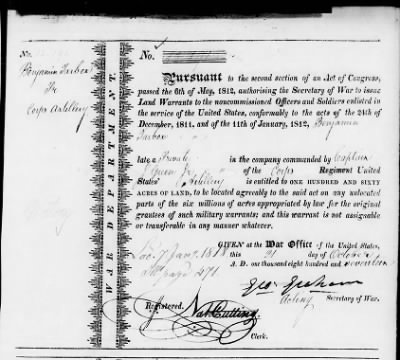 No.
Benjamin Tarbox
Corps Artillery
WAR DEPARTMENT.
No.
Pursuant to the second section of an Act of Congress,
passed the 6th of May, 1812, authorising the Secretary of War to issue
Land Warrants to the noncommissioned Officers and Soldiers enlisted in
the service of the United States, conformably to the acts of the 24th of
December, 1811, and of the 11th of January, 1812, Benjamin
Tarbox
late a Private in the company commanded by Captain
of the Corps Regiment United
States' Artillery is entitled to ONE HUNDRED AND SIXTY
ACRES OF LAND, to be located agreeably to the said act on any unlocated
parts of the six millions of acres appropriated by law for the original
grantees of such military warrants; and this warrant is not assignable
or transferable in any manner whatever.
GIVEN at the War Office of the United States,
this 21 day of October
A. D. one thousand eight hundred and seventeen
Geo: Graham
Acting Secretary of War.
Registered.
Nat Cutting
Clerk.